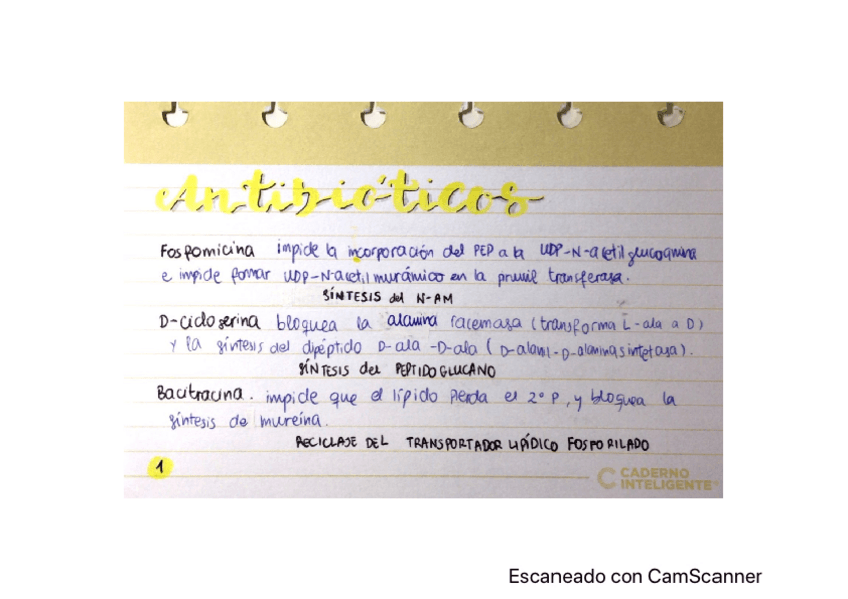 Antibióticos
Fosfomicina impide la incorporación del PEP a la UDP-N-acetilglucoamina
e impide formar UDP-N-acetilmurámico en la piruvil transferasa.
SÍNTESIS del N-AM
D-cicloserina bloquea la alanina racemasa (transforma L-ala a D)
y la síntesis del dipéptido D-ala-D-ala (D-alanil-D-alaninasintetasa).
SÍNTESIS del PEPTIDOGLUCANO
Bacitracina. impide que el lípido pierda el 2º P, y bloquea la
síntesis de mureína.
RECICLASE DEL TRANSPORTADOR LIPÍDICO FOSFORILADO
1
CADERNO
INTELIGENTE
Escaneado con CamScanner